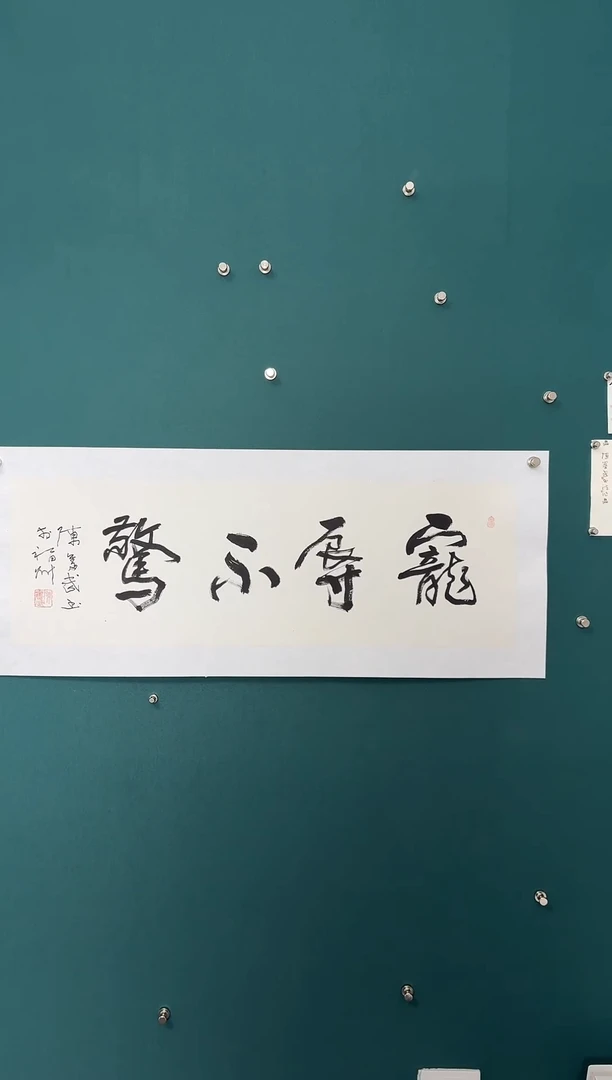 寵辱不驚
陳秀武書
於福州